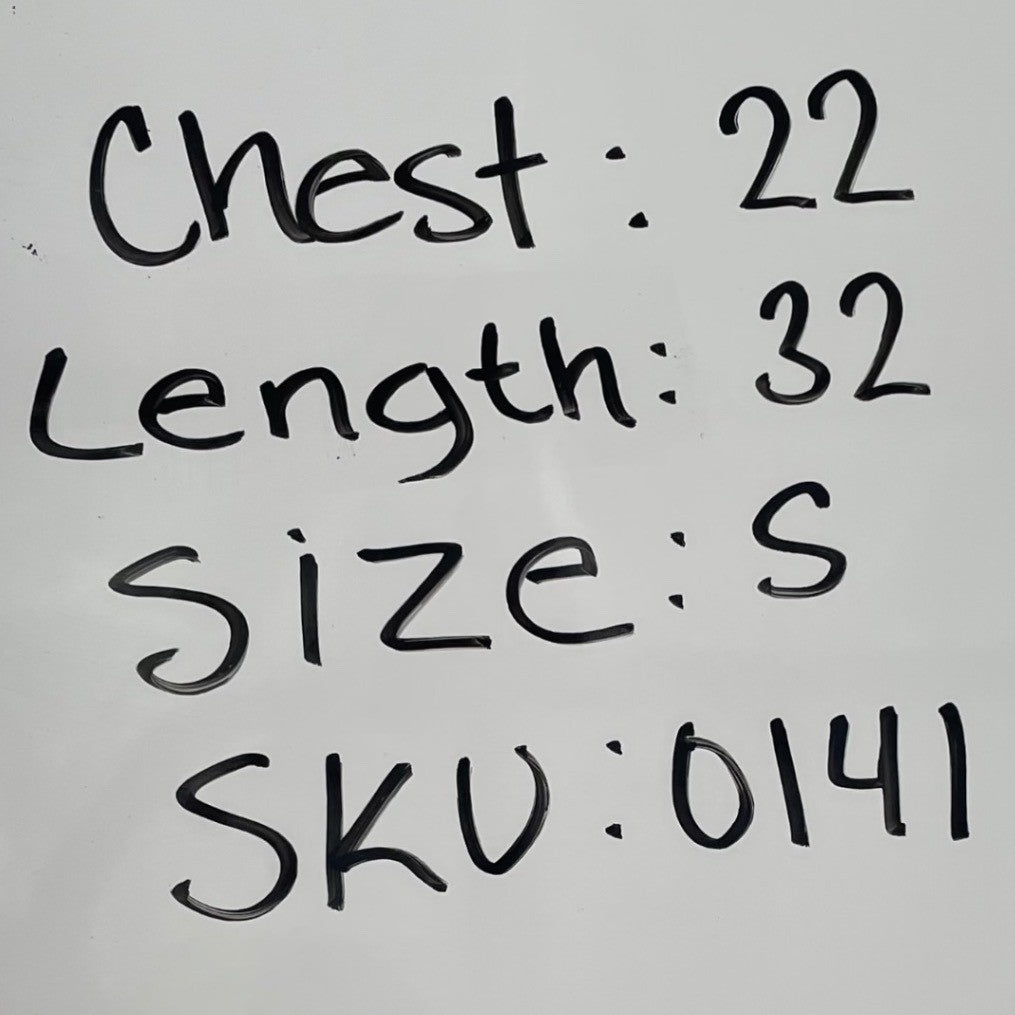 Chest: 22
Length: 32
Size: S
SKU: 0141